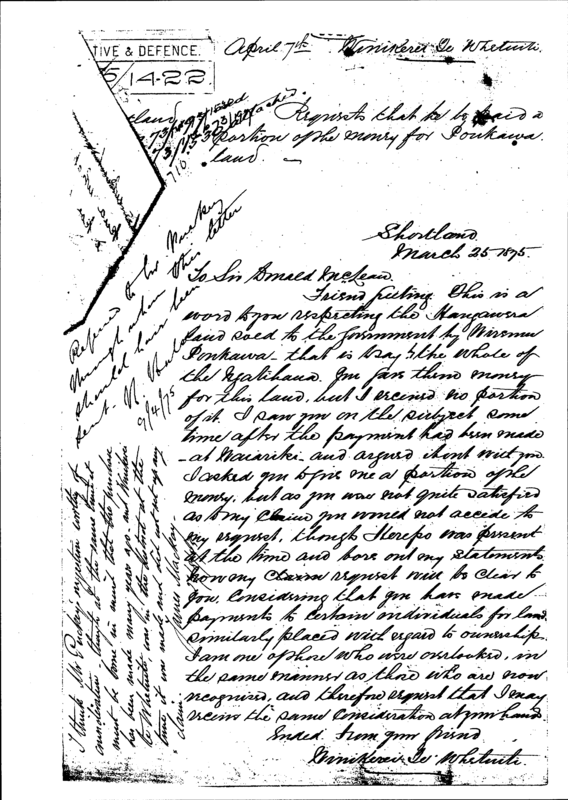 TIVE & DEFENCE.
5/14.22
April 7th Winikerei Te Whetuiti.
Requests that he be paid a
portion of the money for Ponkawa
land —
Shortland
March 25 1875.
To Sir Donald McLean
Friend greeting. This is a
word to you respecting the Hangawera
land sold to the Government by Wiremu
Ponkawa – that is to say by the whole of
the Ngatihaua. You gave them money
for this land, but I received no portion
of it. I saw you on the subject some
time after the payment had been made
– at Waiariki – and argued it out with you.
I asked you to give me a portion of the
money, but as you was not quite satisfied
as to my claim you would not accede to
my request, though was present
at the time and bore out my statements
now my claim request will be clear to
you. Considering that you have made
payments to certain individuals for land
similarly placed with regard to ownership.
I am one of those who were overlooked, in
the same manner as those who are now
recognized, and therefore request that I may
receive the same consideration at your hand.
Ended. From your friend
Winikerei Te Whetuiti.
Referred to Mr Mackay
through whom this letter
should have been
sent.
9/4/75
I think Mr Puckey's suggestion worthy of
consideration though at the same time it
must be borne in mind that the purchase
has been made many years ago and Winikerei
Te Whetuiti was in the district at the
time it was made and did not set up any
claim.
James Mackay